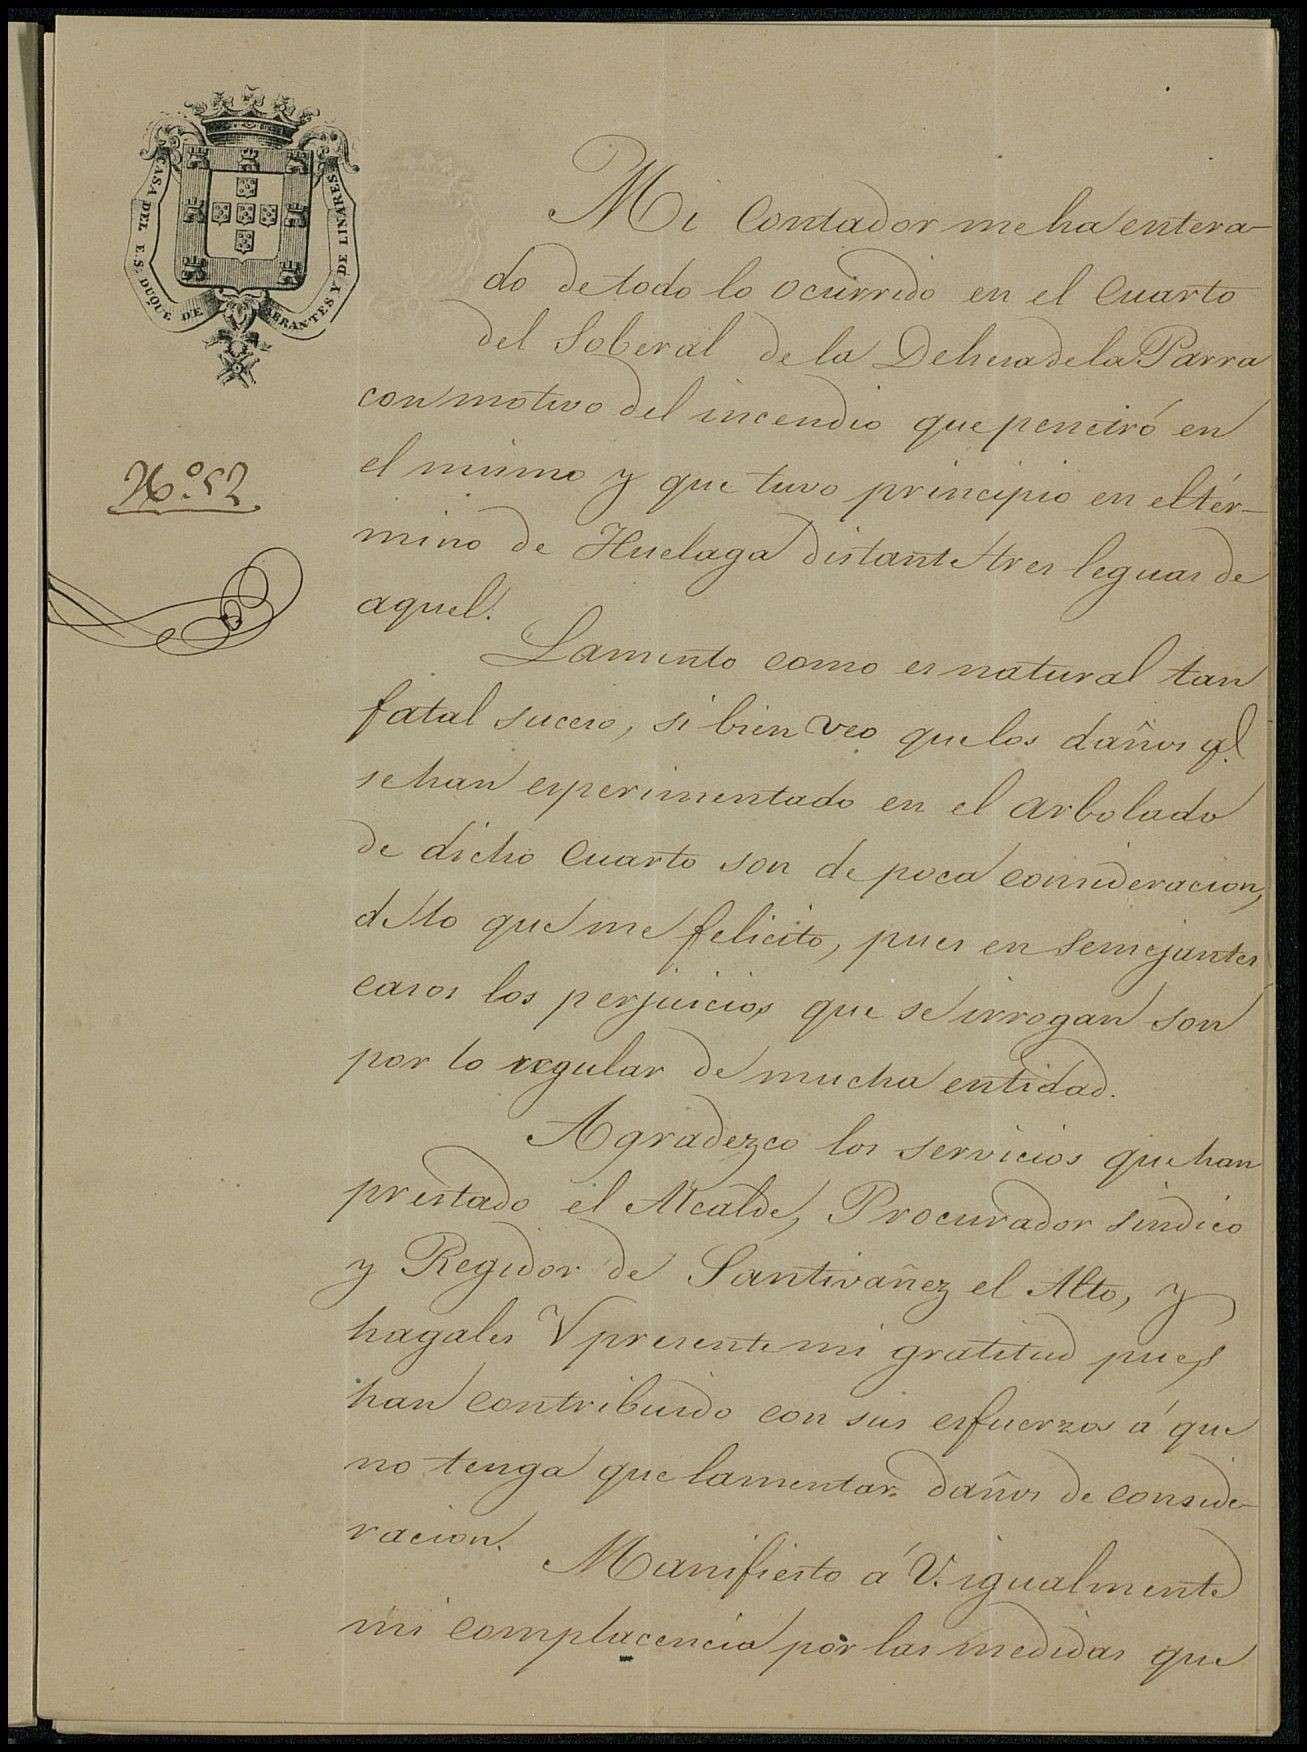 CASA DEL E.S. DUQUE DE ABRANTES Y DE LINARES
Nº. 52
Mi Contador me ha entera-
do de todo lo ocurrido en el Cuarto
del Soberal de la Dehesa de la Parra
con motivo del incendio que penetró en
el mismo y que tuvo principio en el tér-
mino de Huelaga distante tres leguas de
aquel.
Lamento como es natural tan
fatal suceso, si bien veo que los daños q.e
se han esperimentado en el arbolado
de dicho Cuarto son de poca consideracion,
de lo que me felicito, pues en semejantes
casos los perjuicios que se irrogan son
por lo regular de mucha entidad.
Agradezco los servicios que han
prestado el Alcalde, Procurador sindico
y Regidor de Santivañez el Alto, y
hagales V presente mi gratitud pues
han contribuido con sus esfuerzos á que
no tenga que lamentar daños de conside-
racion.
Manifiesto á V. igualmente
mi complacencia por las medidas que